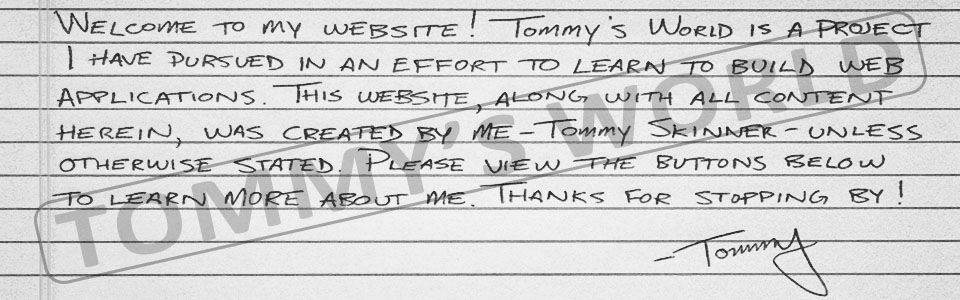 Welcome to my website! Tommy's World is a project
I have pursued in an effort to learn to build web
applications. This website, along with all content
herein, was created by me - Tommy Skinner - unless
otherwise stated. Please view the buttons below
to learn more about me. Thanks for stopping by!
- Tommy
TOMMY'S WORLD